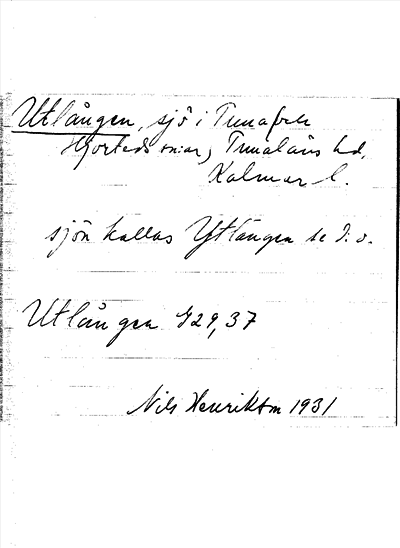 Utlången, sjö i Tuna och
Hjorteds snar, Tunaläns hd,
Kalmar l.
sjön kallas Ytlången se d. o.
Utlången G29, 37
Nils Henrikson 1931